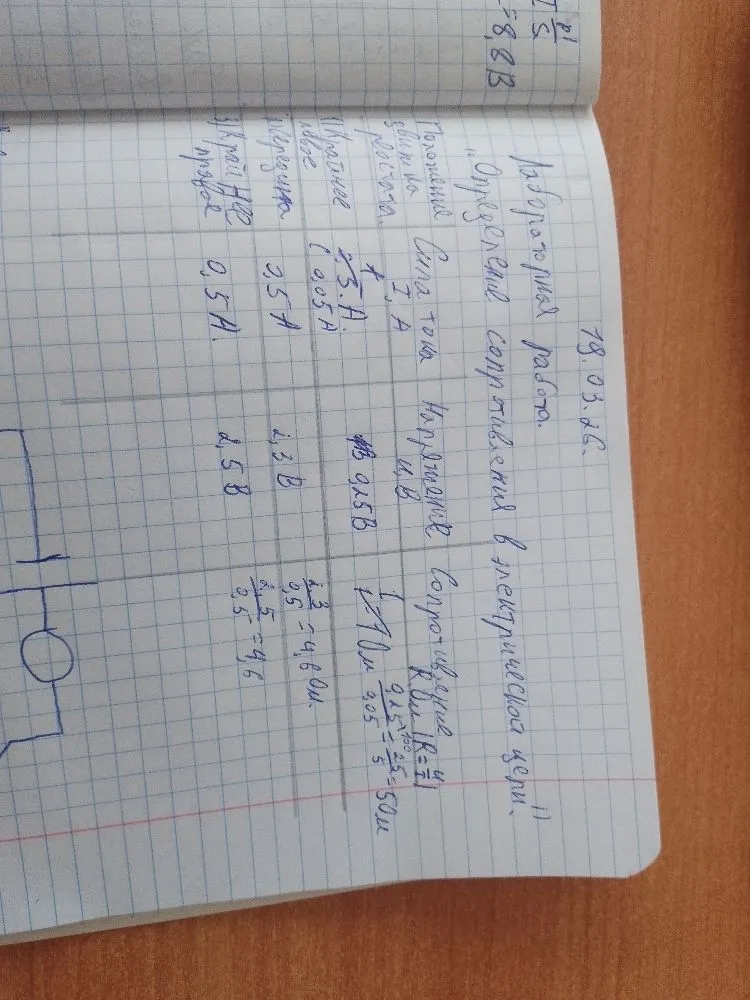 ρl
S
=8,8В
19.03.26.
Лабораторная работа.
"Определение сопротивления в электрической цепи."
Положение звинка реостата
Сила тока I, А
Напряжение U, В
Сопротивление R Ом (R = U/I)
1) Крайнее левое
(0,05 А
0,25 В
0,25/0,05 ·100 = 25/5 = 5 Ом
середина
0,5 А
2,3 В
2,3/0,5 = 4,6 Ом.
3) Крайнее правое
0,5 А.
2,5 В
2,5/0,5 = 4,6